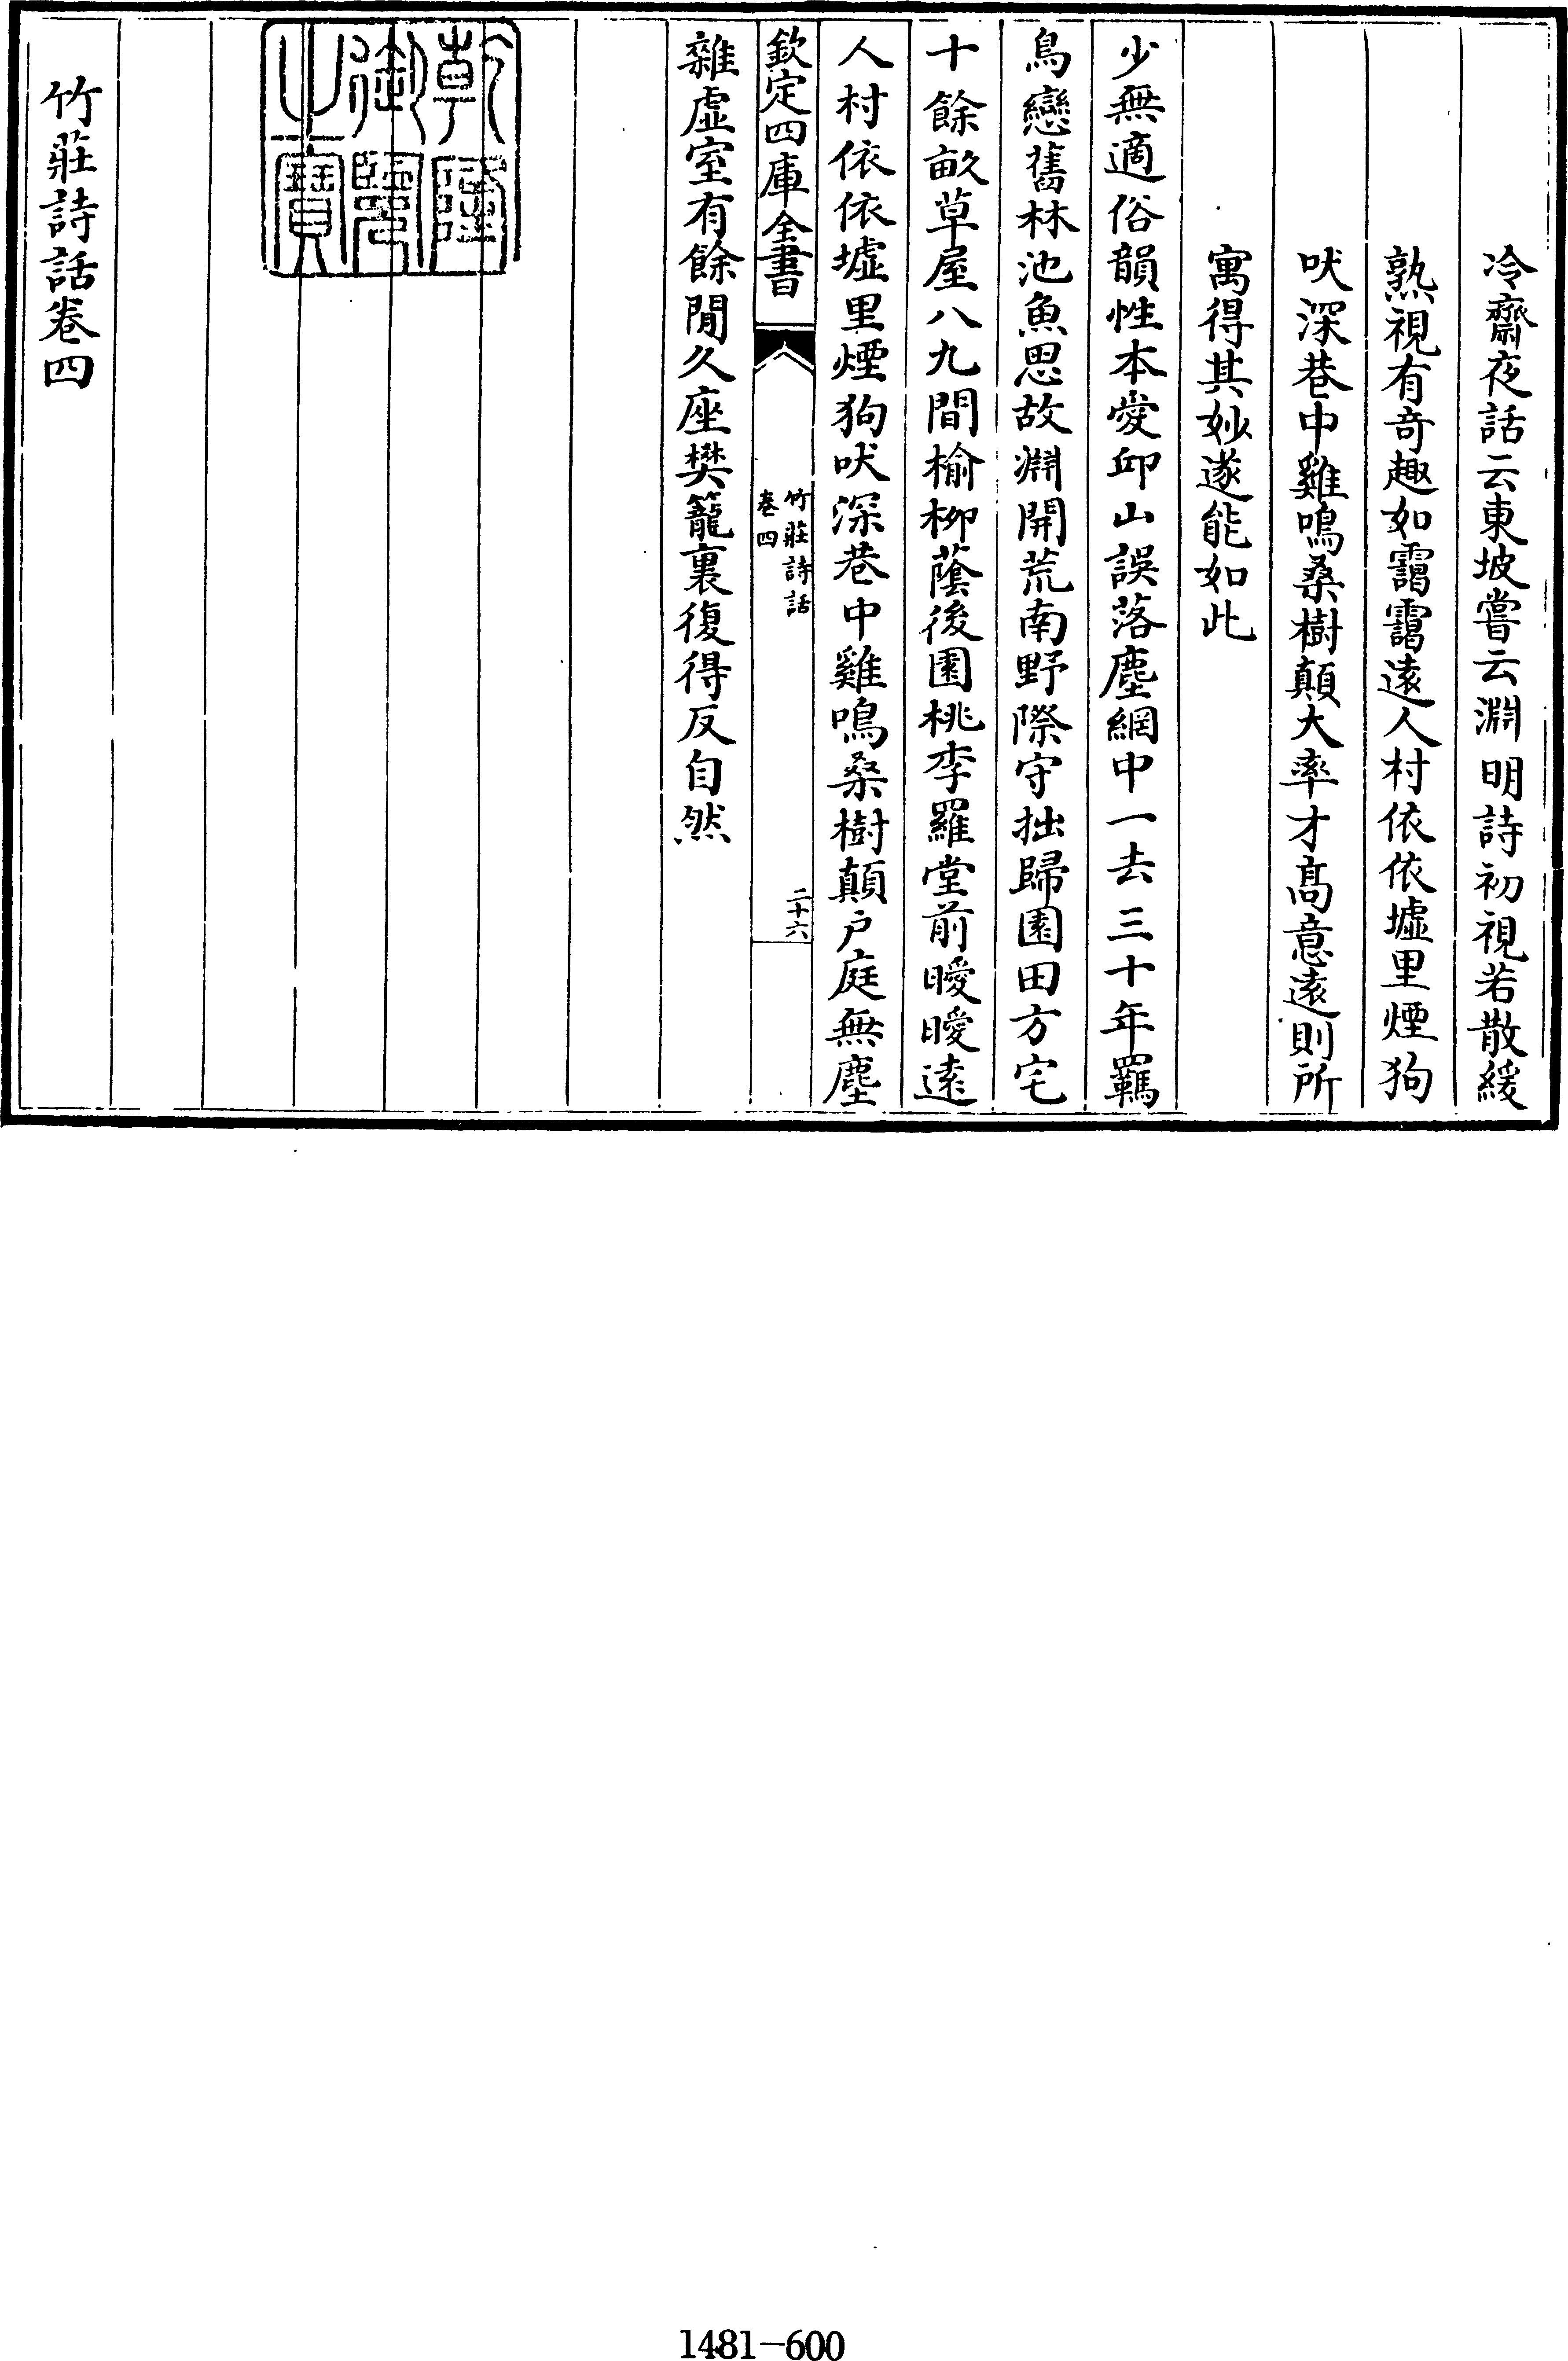 冷齋夜話云東坡嘗云淵明詩初視若散緩
熟視有奇趣如靄靄遠人村依依墟里煙狗
吠深巷中雞鳴桑樹顛大率才髙意遠則所
寓得其妙遂能如此
少無適俗韻性本愛邱山誤落塵網中一去三十年羈
鳥戀舊林池魚思故淵開荒南野際守拙歸園田方宅
十餘畝草屋八九間榆栁蔭後園桃李羅堂前曖曖遠
人村依依墟里煙狗吠深巷中雞鳴桑樹顛户庭無塵
欽定四庫全書
竹莊詩話
卷四
二十六
雜虛室有餘閒久座樊籠裏復得反自然
乾隆
御覽
之寶
竹莊詩話卷四
1481-600